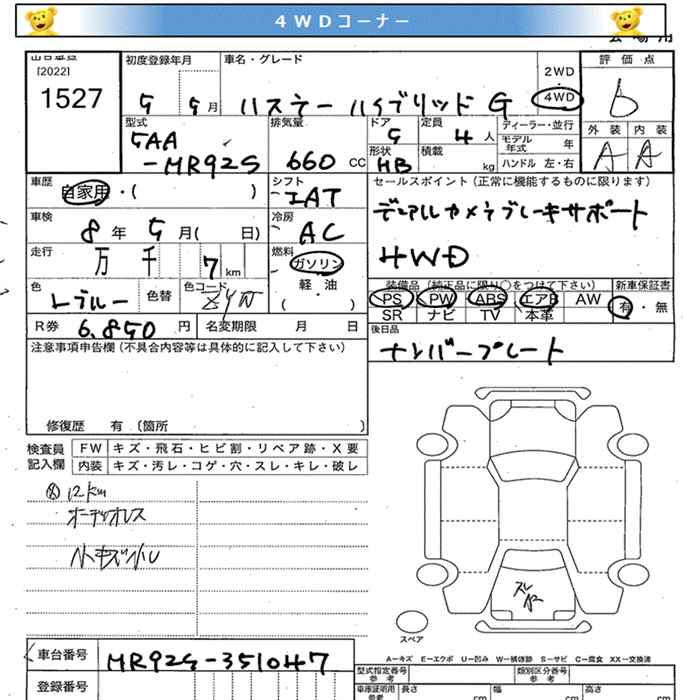 4WDコーナー
出品番号
[2022]
1527
初度登録年月
5 5月
車名・グレード
ハスラー ハイブリッド G
2WD
4WD
評価点
6
外装 内装
A A
型式
5AA
-MR92S
排気量
660 CC
ドア
5
定員
4人
形状
HB
積載
kg
ディーラー・並行
モデル年式 年
ハンドル 左・右
車歴
自家用・( )
シフト
IAT
セールスポイント(正常に機能するものに限ります)
デュアルカメラブレーキサポート
4WD
車検
8年 5月( 日)
冷房
AC
走行
万 千 7 km
燃料
ガソリン
軽・油
( )
色
Lブルー
色替
色コード
ZYW
装備品(純正品に限り○をつけて下さい)
PS PW ABS エアB AW
SR ナビ TV 本革
新車保証書
有・無
R券 6,850 円
名変期限 月 日
後日品
ナンバープレート
注意事項申告欄(不具合内容等は具体的に記入して下さい)
修復歴 有〔箇所 〕
検査員
記入欄
FW キズ・飛石・ヒビ割・リペア跡・X要
内装 キズ・汚レ・コゲ・穴・スレ・キレ・破レ
12km
オーディオレス
小キズ小U
スペア
A−キズ E−エクボ U−凹み W−補修跡 S−サビ C−腐食 XX−交換済
車台番号
MR92S-351047
登録番号
型式指定番号
参考
類別区分番号
参考
車庫証明用
参考
長さ cm
幅 cm
高さ cm